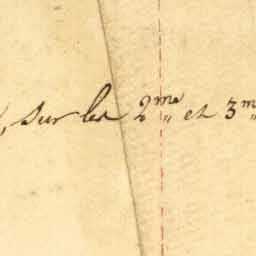 , sur les 2me et 3m